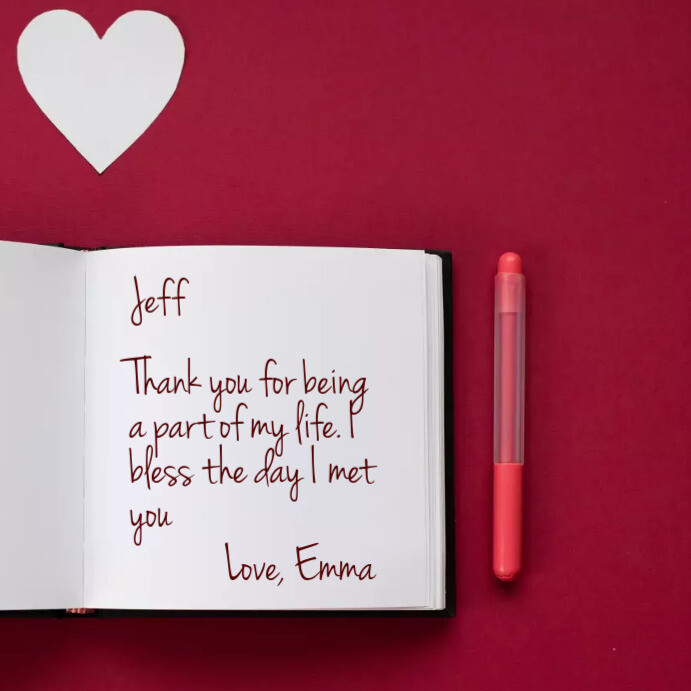 Jeff
Thank you for being
a part of my life. I
bless the day I met
you
Love, Emma